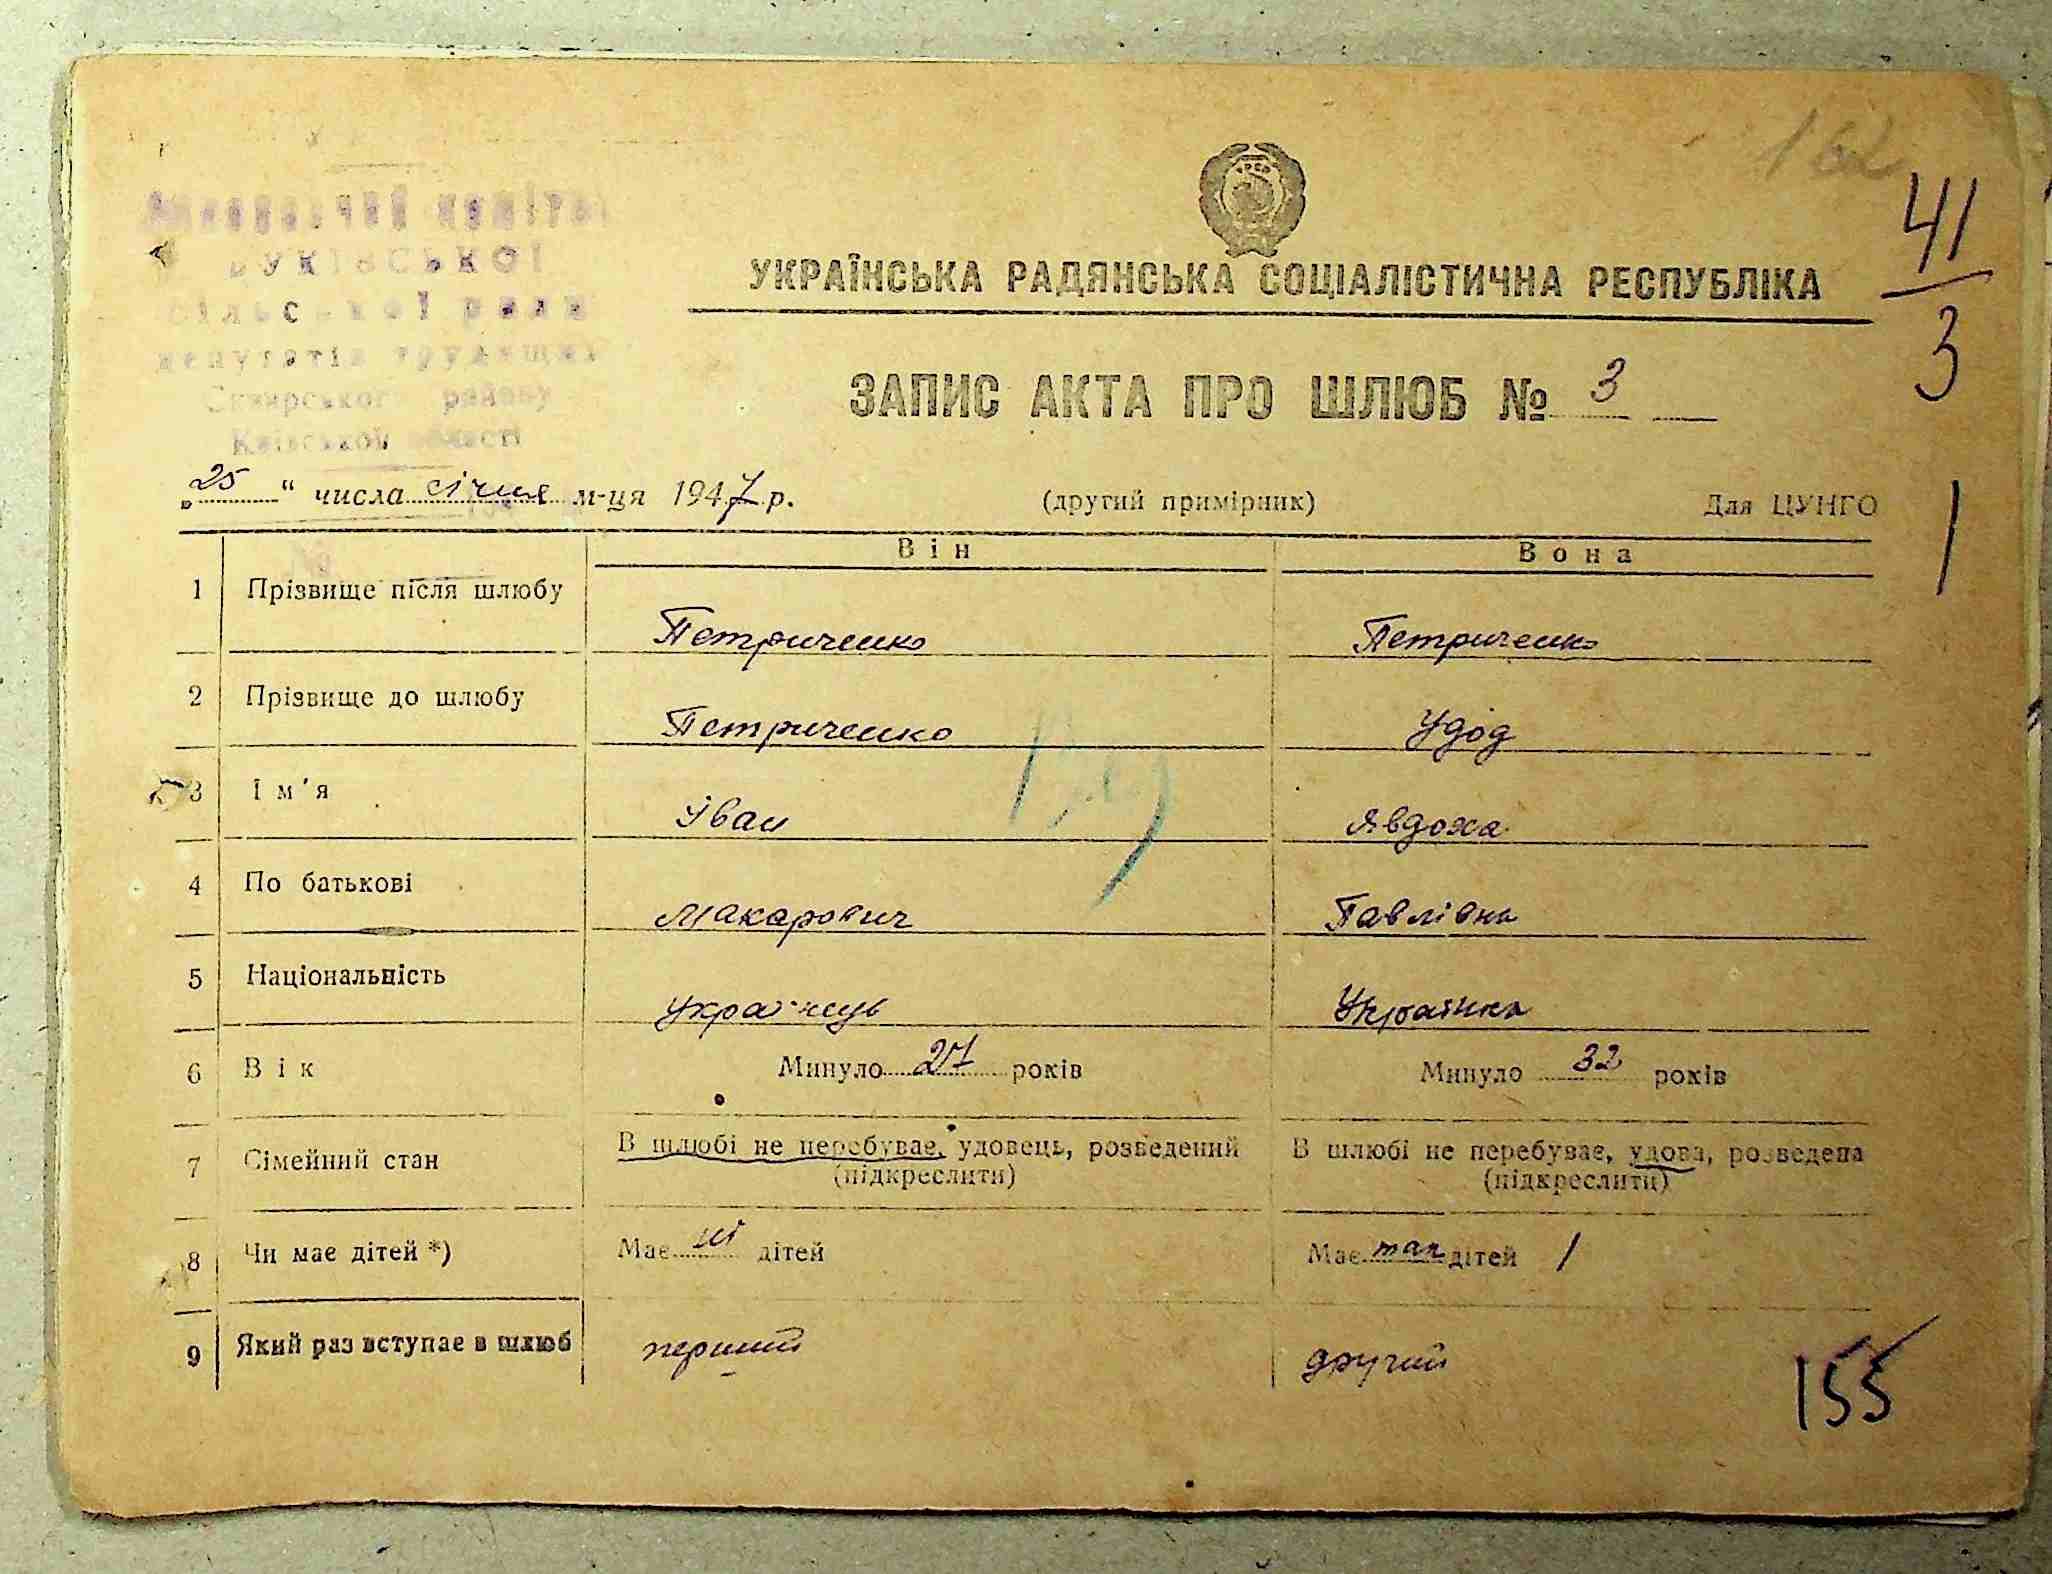 162
41
3
1
Виконавчий комітет
БУКІВСЬКОЇ
сільської ради
депутатів трудящих
Сквирського району
Київської області
УКРАЇНСЬКА РАДЯНСЬКА СОЦІАЛІСТИЧНА РЕСПУБЛІКА
ЗАПИС АКТА ПРО ШЛЮБ № 3
„25“ числа січня м-ця 1947 р. (другий примірник) Для ЦУНГО
№
Він Вона
1 Прізвище після шлюбу Петриченко Петриченко
2 Прізвище до шлюбу Петриченко Удод
3 Ім'я Іван Явдоха
4 По батькові Макарович Павлівна
5 Національність Українець Українка
6 Вік Минуло 27 років Минуло 32 років
7 Сімейний стан В шлюбі не перебуває, удовець, розведений В шлюбі не перебуває, удова, розведена
(підкреслити) (підкреслити)
8 Чи має дітей *) Має ні дітей Має так дітей 1
9 Який раз вступає в шлюб перший другий
155